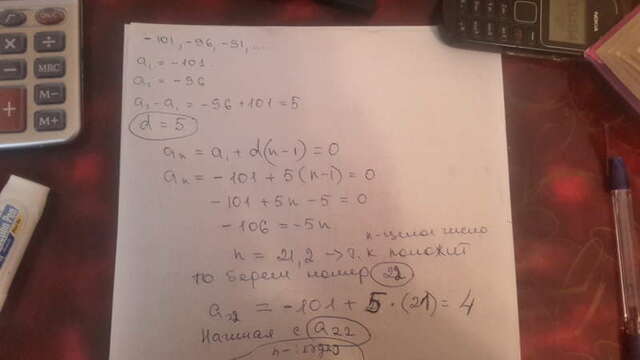 -101, -96, -91, ...
a₁ = -101
a₂ = -96
a₂ - a₁ = -96 + 101 = 5
d = 5
aₙ = a₁ + d(n-1) = 0
aₙ = -101 + 5(n-1) = 0
-101 + 5n - 5 = 0
-106 = -5n
n-целое число
n = 21,2 → т. к положит
то берем номер 22
a₂₂ = -101 + 5 · (21) = 4
Начиная с a₂₂
NOKIA
MRC
M-
M+